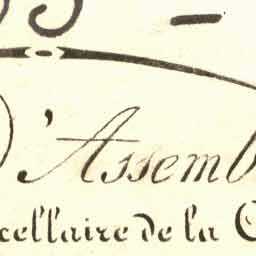 D'Assemb
cellaire de la C